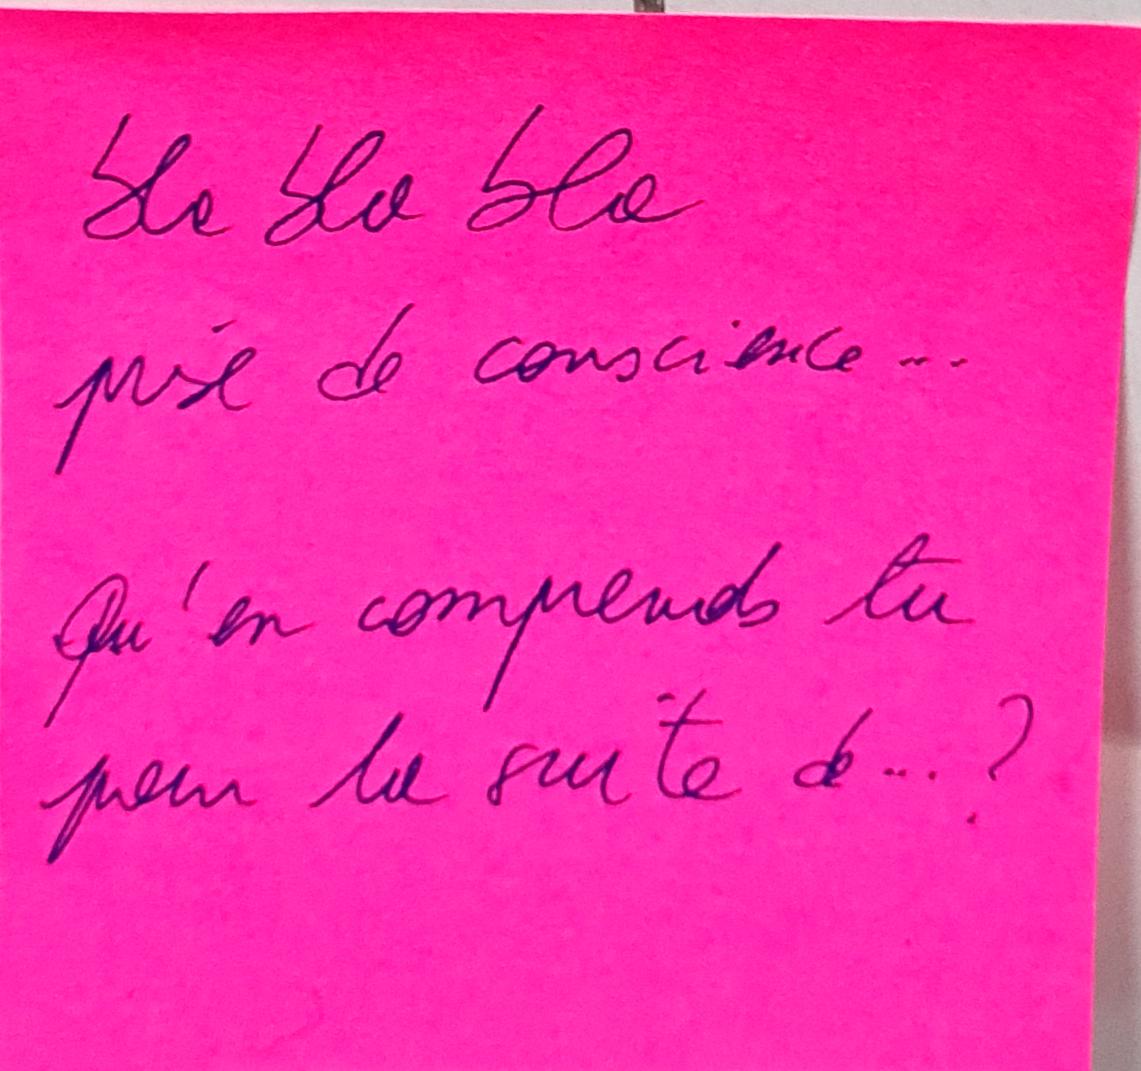 bla bla bla
prise de conscience...
Qu'en comprends tu
pour la suite de... ?